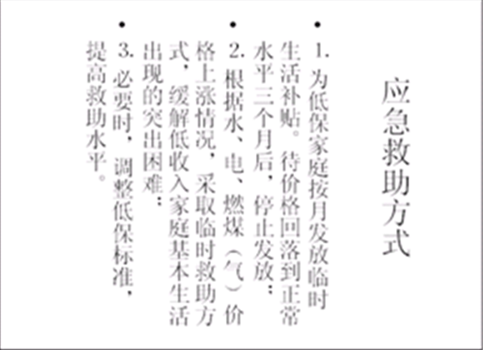 应急救助方式
• 1. 为低保家庭按月发放临时
生活补贴。待价格回落到正常
水平三个月后，停止发放；
• 2. 根据水、电、燃煤（气）价
格上涨情况，采取临时救助方
式，缓解低收入家庭基本生活
出现的突出困难；
• 3. 必要时，调整低保标准，
提高救助水平。